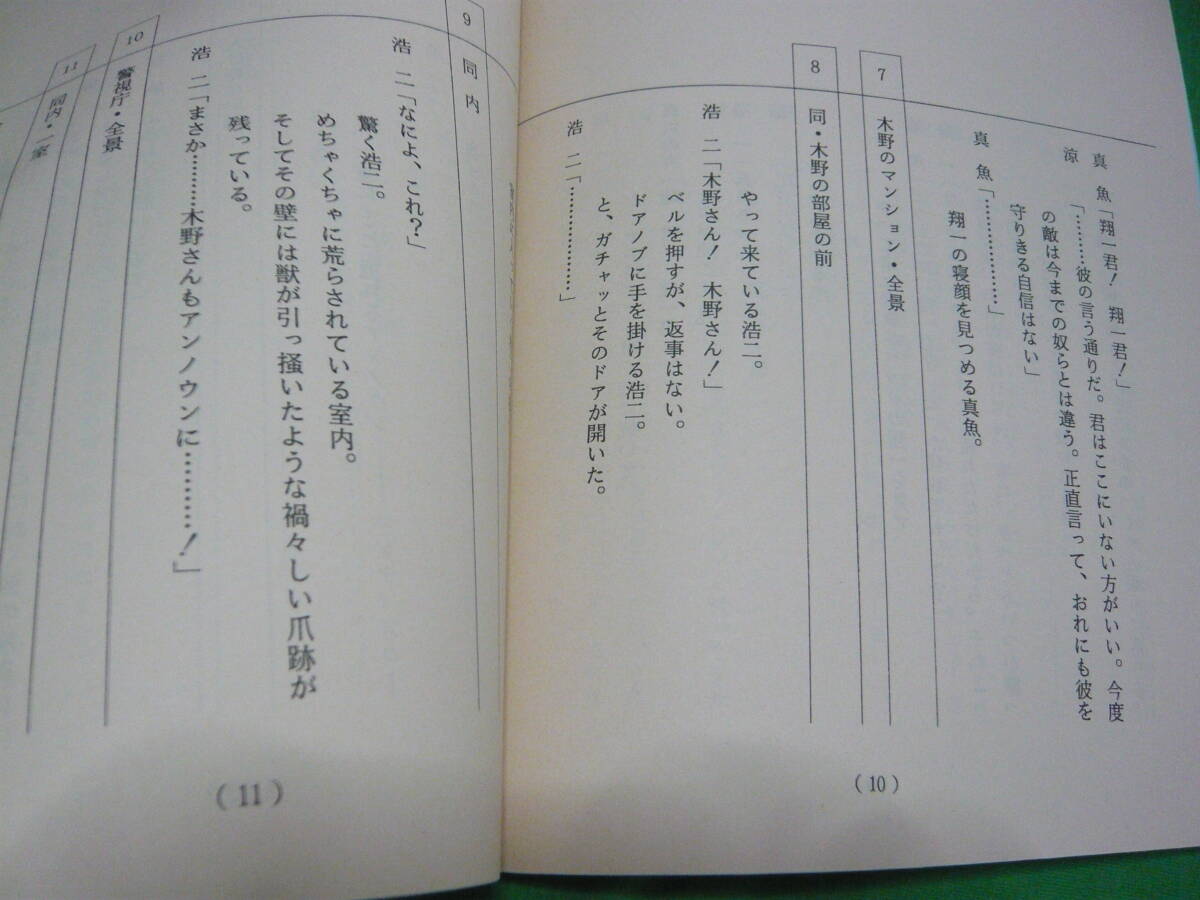 真　魚「翔一君！　翔一君！」
涼　　「………彼の言う通りだ。君はここにいない方がいい。今度
の敵は今までの奴らとは違う。正直言って、おれにも彼を
守りきる自信はない」
真　魚「………………」
翔一の寝顔を見つめる真魚。
7　木野のマンション・全景
8　同・木野の部屋の前
やって来ている浩二。
浩　二「木野さん！　木野さん！」
ベルを押すが、返事はない。
ドアノブに手を掛ける浩二。
と、ガチャッとそのドアが開いた。
浩　二「……………」
(10)
9　同　内
浩　二「なによ、これ？」
驚く浩二。
めちゃくちゃに荒らされている室内。
そしてその壁には獣が引っ掻いたような禍々しい爪跡が
残っている。
浩　二「まさか………木野さんもアンノウンに………！」
10　警視庁・全景
11　同内・一室
(11)